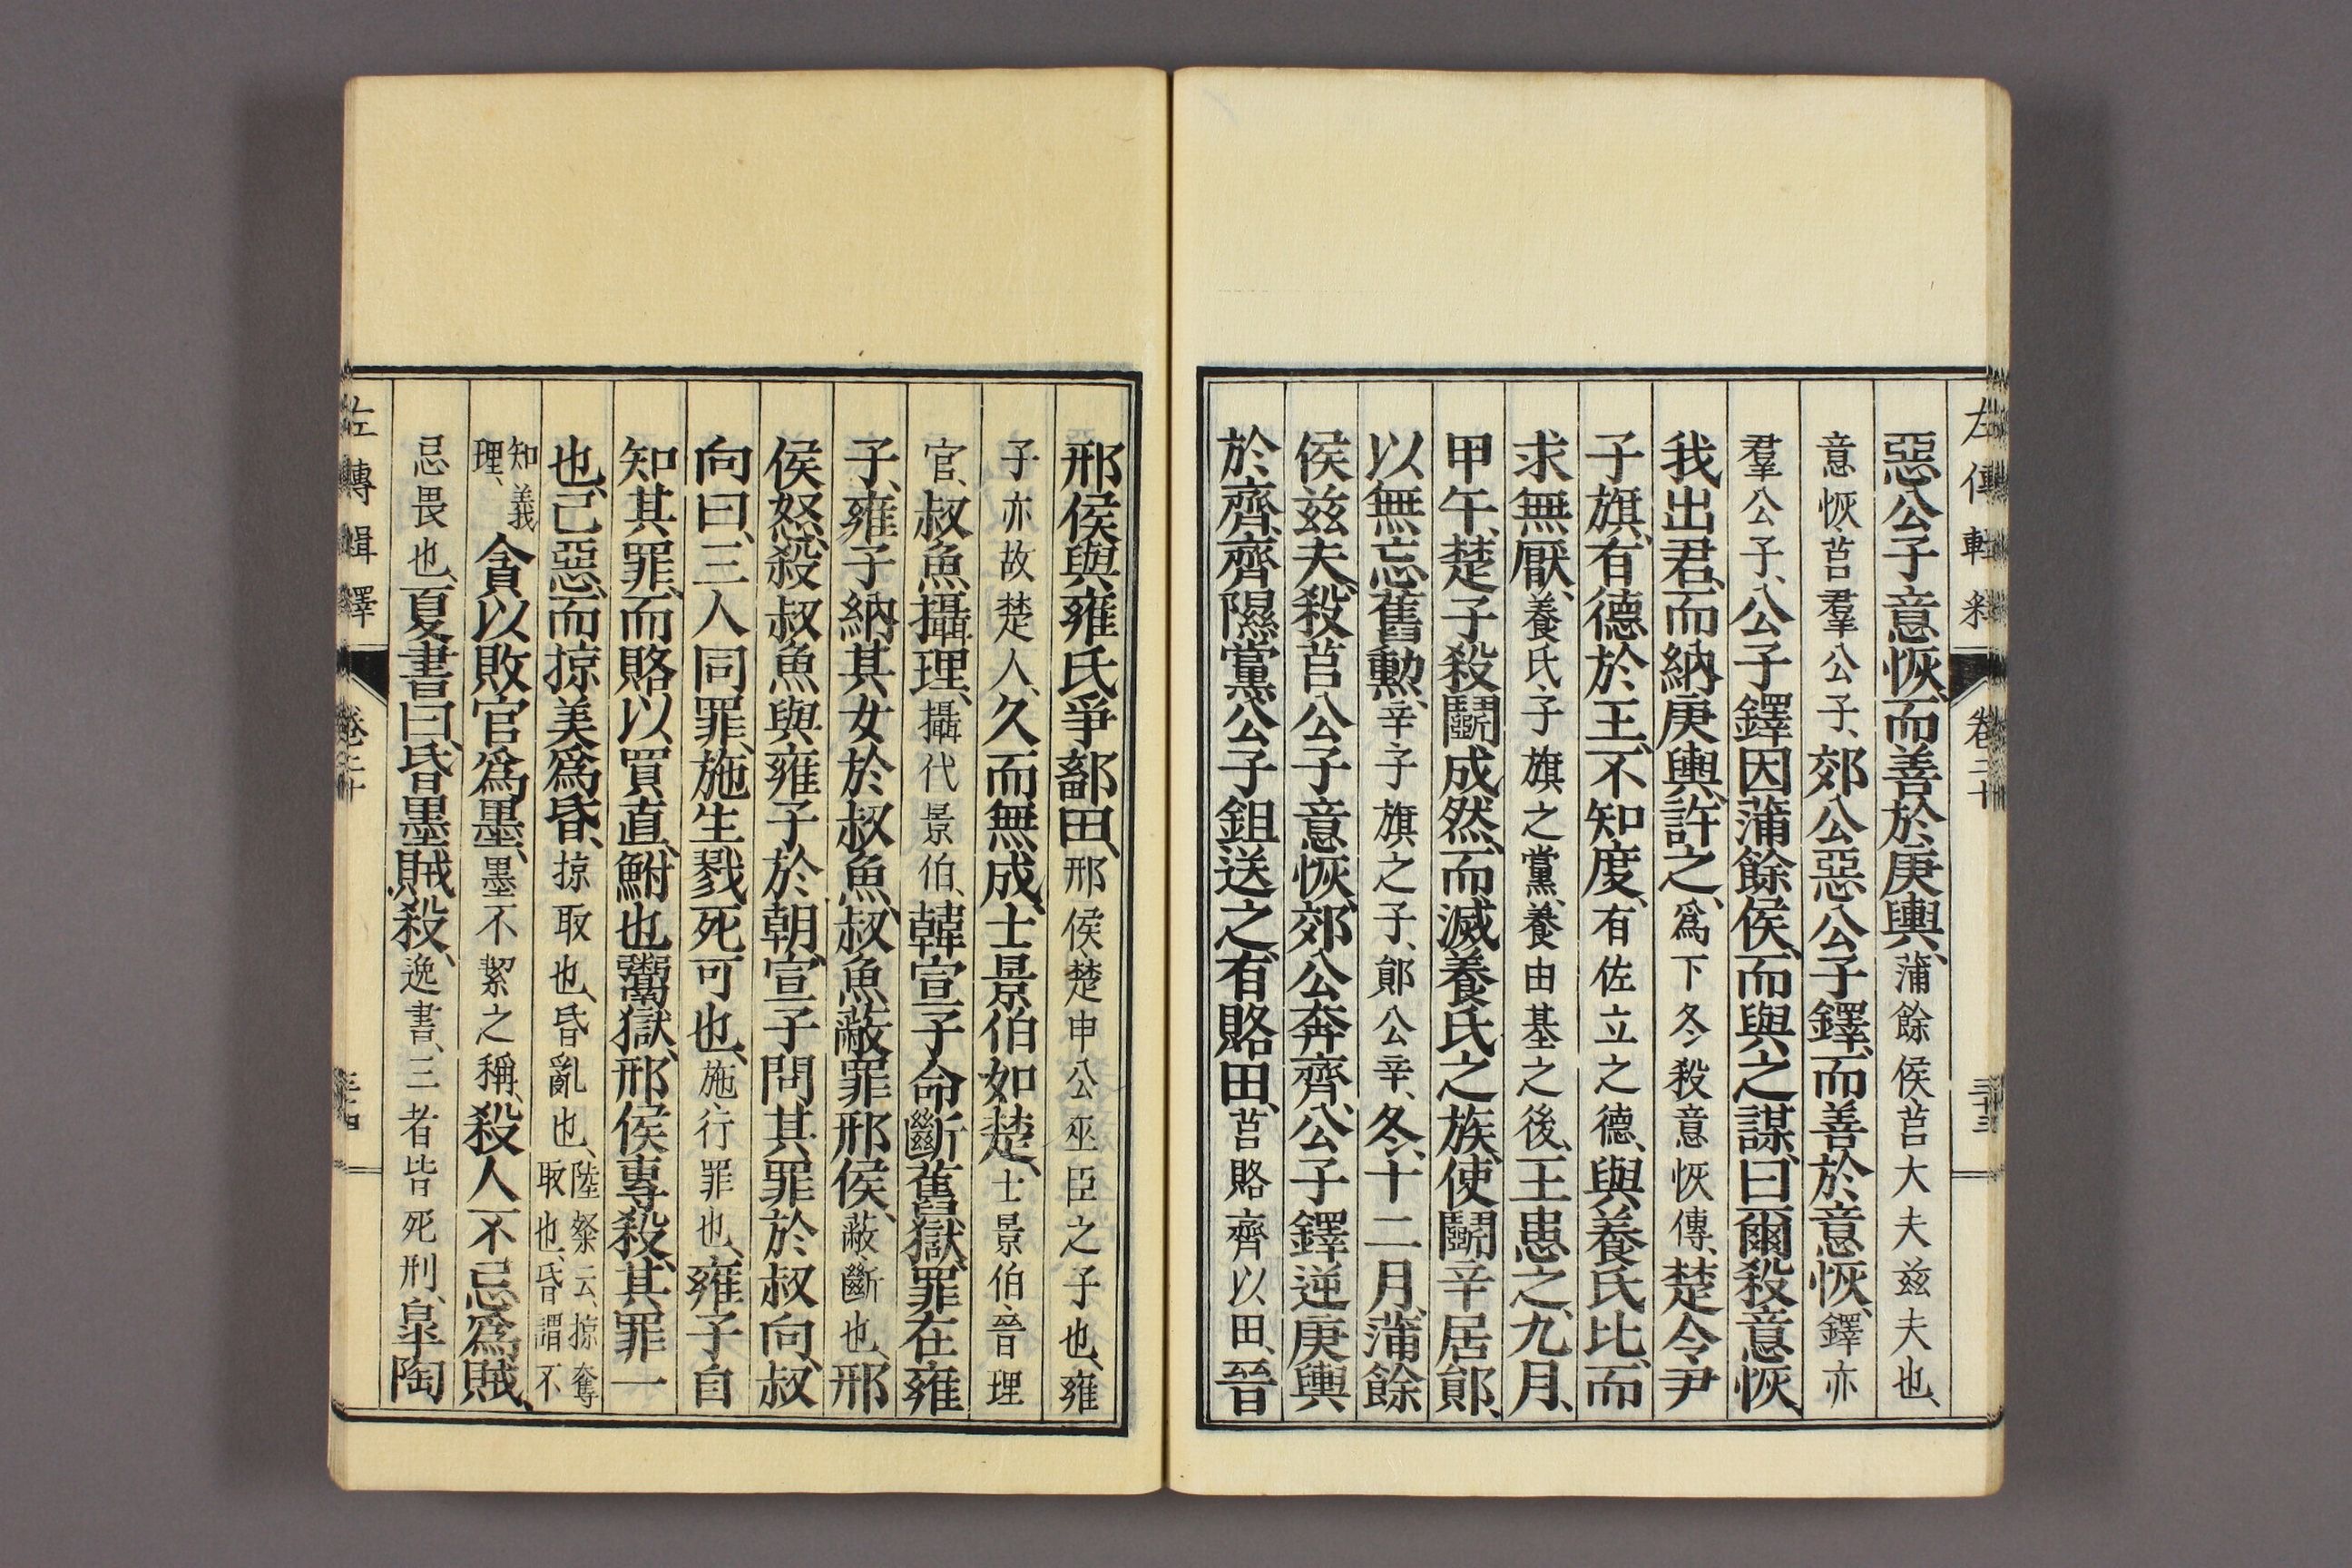 惡公子意恢、而善於庚輿、蒲餘侯、莒大夫茲夫也、
意恢、莒羣公子、郊公惡公子鐸、而善於意恢、鐸亦
羣公子、公子鐸因蒲餘侯、而與之謀、曰爾殺意恢、
我出君、而納庚輿、許之、爲下冬殺意恢傳、楚令尹
子旗、有德於王、不知度、有佐立之德、與養氏比、而
求無厭、養氏、子旗之黨、養由基之後、王患之、九月、
甲午、楚子殺鬭成然、而滅養氏之族、使鬭辛居鄖、
以無忘舊勳、辛、子旗之子、鄖公辛、冬、十二月、蒲餘
侯茲夫、殺莒公子意恢、郊公奔齊、公子鐸逆庚輿
於齊、齊隰黨公子鉏送之、有賂田、莒賂齊以田、晉
邢侯與雍氏爭鄐田、邢侯、楚申公巫臣之子也、雍
子亦故楚人、久而無成、士景伯如楚、士景伯、晉理
官、叔魚攝理、攝代景伯、韓宣子命斷舊獄、罪在雍
子、雍子納其女於叔魚、叔魚蔽罪邢侯、蔽、斷也、邢
侯怒、殺叔魚與雍子於朝、宣子問其罪於叔向、叔
向曰、三人同罪、施生戮死可也、施、行罪也、雍子自
知其罪、而賂以買直、鮒也鬻獄、邢侯專殺、其罪一
也、己惡、而掠美爲昏、掠取也、昏亂也、陸粲云、掠奪取也、昏謂不
知義理、貪以敗官爲墨、墨不絜之稱、殺人不忌爲賊、
忌畏也、夏書曰、昏墨賊殺、逸書、三者皆死刑、皐陶
左傳輯釋
卷二十